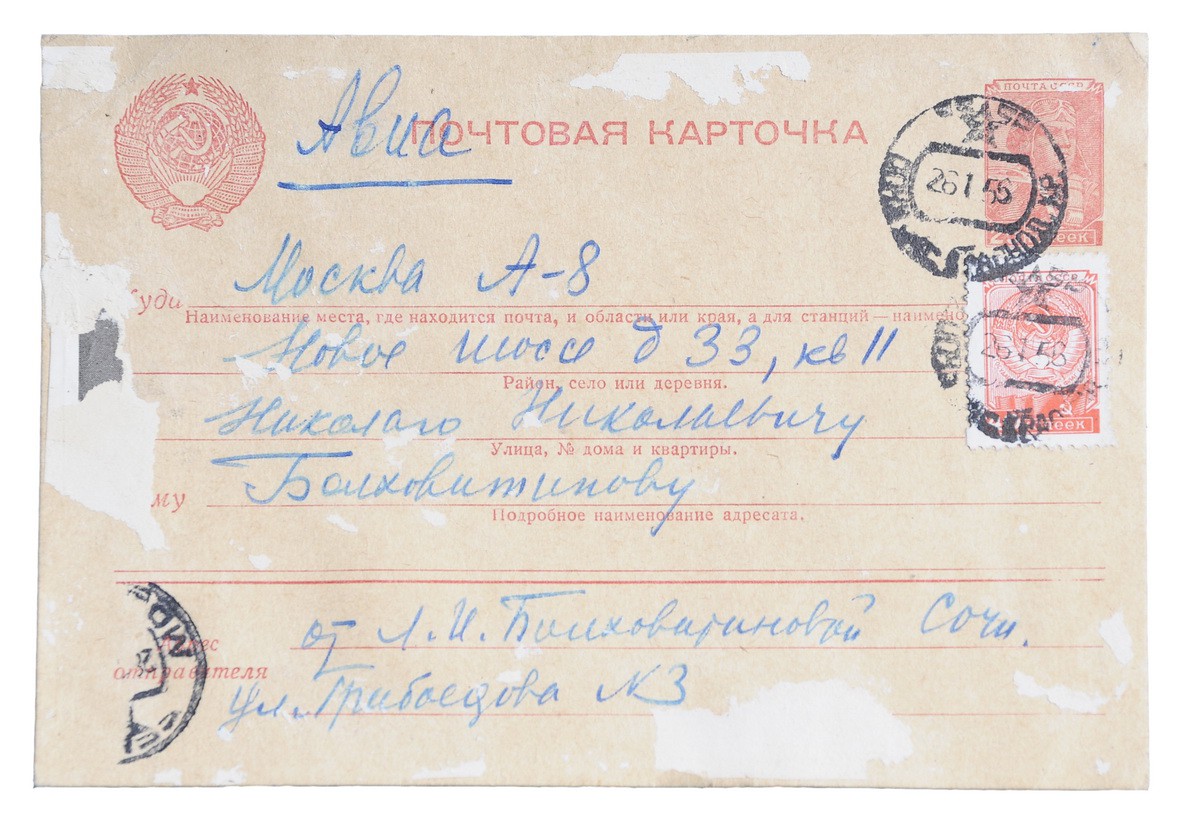 Авиа
ПОЧТОВАЯ КАРТОЧКА
ПОЧТА СССР
26 1 56
Куда Москва А-8
Наименование места, где находится почта, и области или края, а для станций — наимено
Новое шоссе д 33, кв 11
Район, село или деревня.
26 1 56
Николаю Николаевичу
Улица, № дома и квартиры.
му Болховитинову
Подробное наименование адресата.
Адрес от Л.И. Болховитиновой Сочи.
отправителя ул. Грибоедова №3